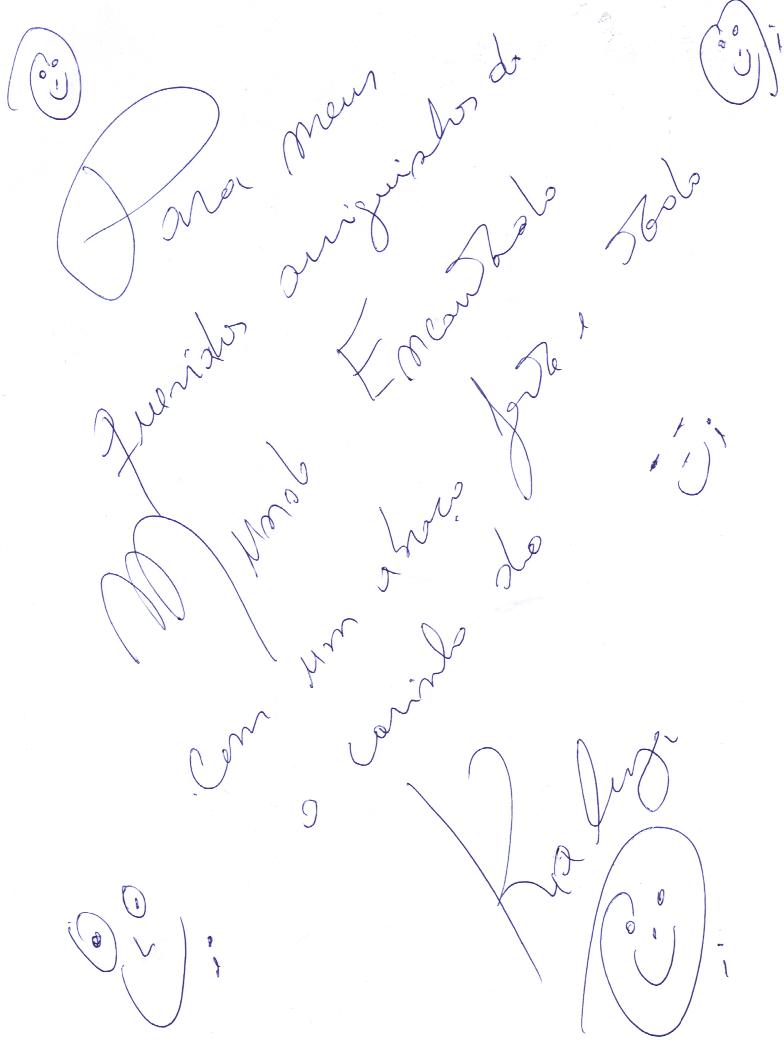 Para meus
queridos amiguinhos do
Mundo Encantado
com um abraço forte e todo
o carinho do